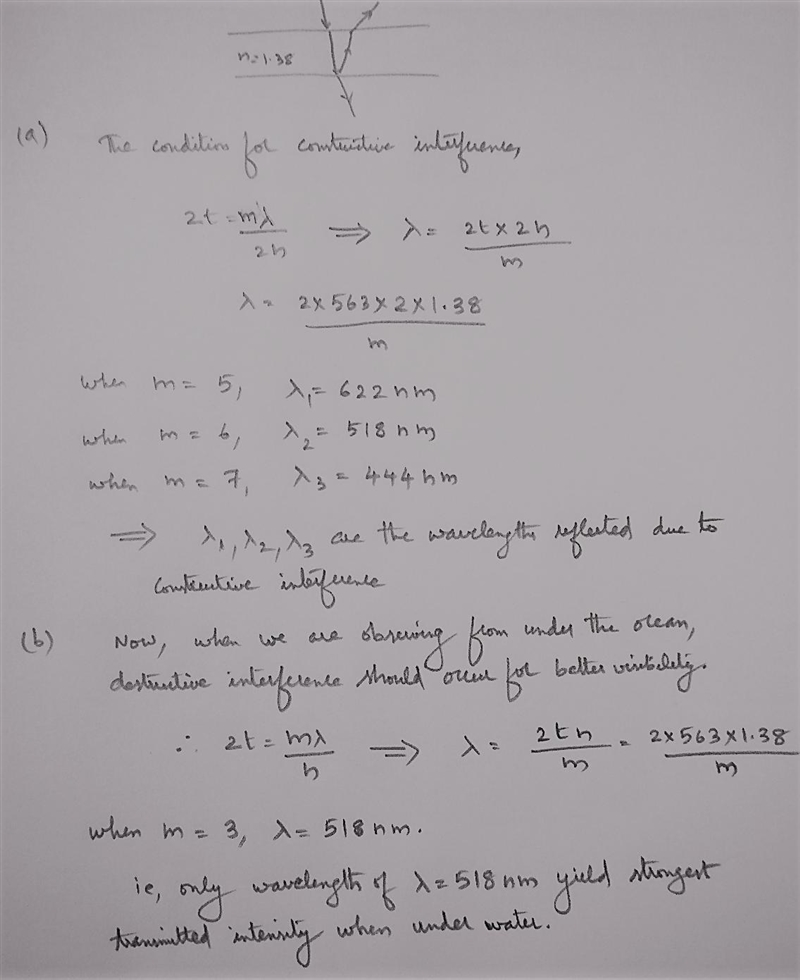 n=1.38
(a) The condition for constructive interference,
2t = mλ/2n ⟹ λ = 2t×2n/m
λ = 2×563×2×1.38/m
when m = 5, λ₁= 622nm
when m = 6, λ₂= 518 nm
when m = 7, λ₃ = 444nm
⟹ λ₁, λ₂, λ₃ are the wavelengths reflected due to
constructive interference
(b) Now, when we are observing from under the ocean,
destructive interference should occur for better visibility.
∴ 2t = mλ/n ⟹ λ = 2tn/m = 2×563×1.38/m
when m = 3, λ = 518nm.
ie, only wavelength of λ=518nm yield strongest
transmitted intensity when under water.